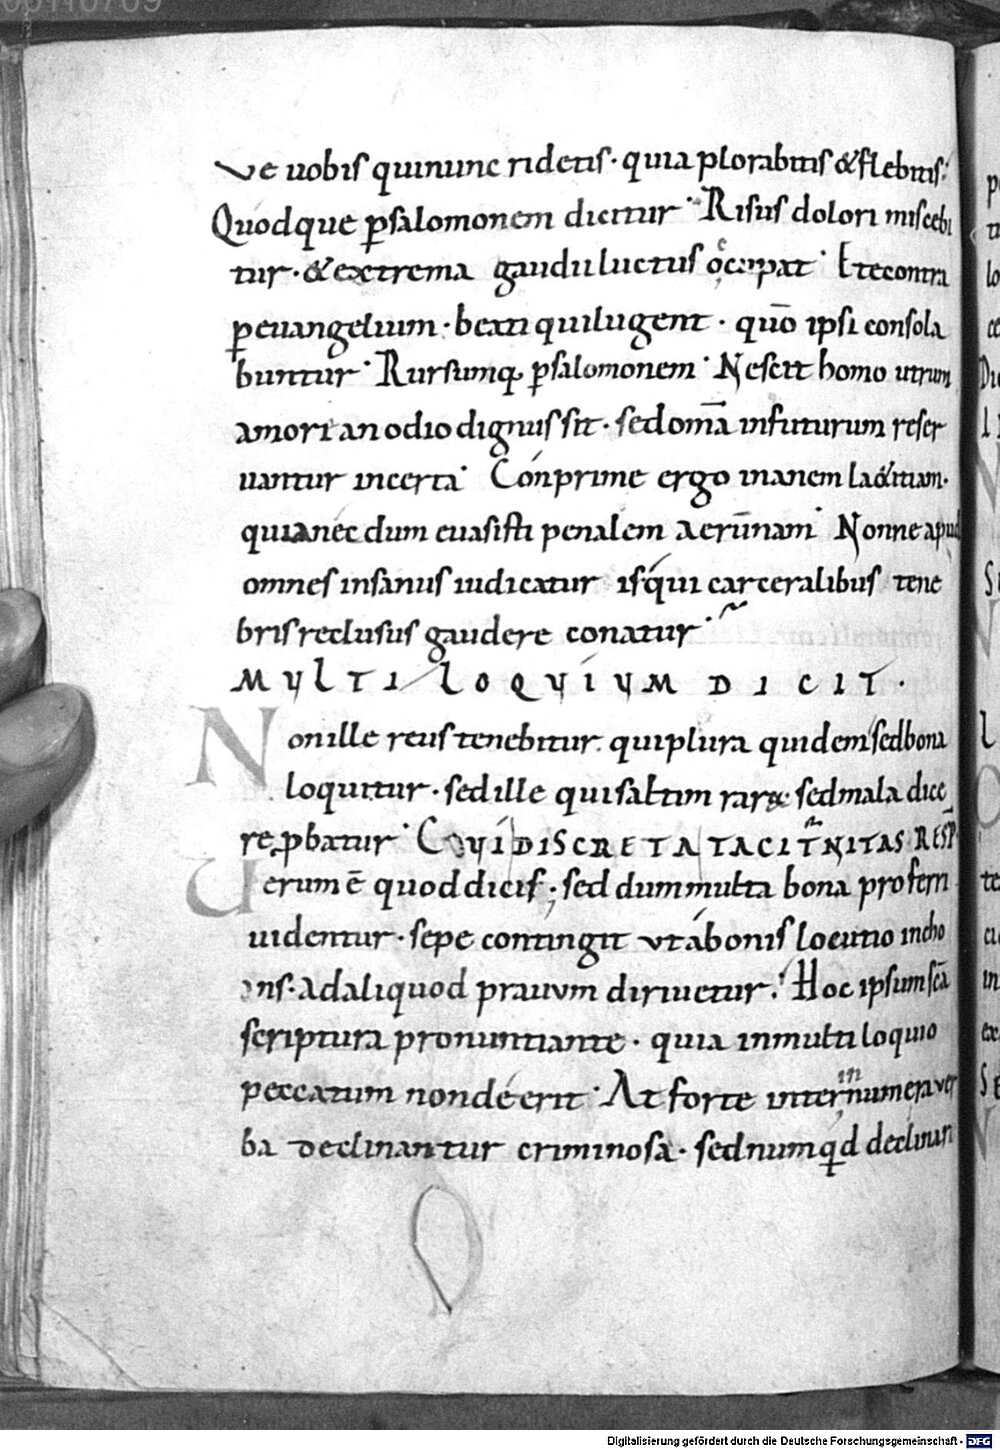 Ve uobis quinunc ridetis · quia plorabitis & flebitis;
Quodque p̱salomonem dicitur · Risus dolori miscebi
tur · & extrema gaudii luctus occupat · Et econtra
p̱euangelium · beati quilugent · quō ipsi consola
buntur · Rursumq; p̱salomonem · Nescit homo utrum
amori an odio dignus sit · sed om̄a infuturum reser
uantur incerta · Conprime ergo inanem laetitiam ·
quianec dum euasisti penalem aerūnam · Nonne apud
omnes insanus iudicatur isqui carceralibus tene
bris reclusus gaudere conatur
MULTILOQUIUM DICIT ·
Non ille reus tenebitur · quiplura quidem sedbona
loquitur · sed ille quisaltim rara sedmala dice
re p̱batur · CUI DISCRETA TACITṸRNITAS RESP̄
Uerum ē quod dicis; sed dum multa bona proferri
uidentur · sepe contingit ut a bonis locutio incho
ans · ad aliquod prauum diriuetur; Hoc ipsum scā
scriptura pronuntiante · quia inmultiloquio
peccatum non deerit · At forte internumera ver
ba declinantur criminosa · sed numqd declinari